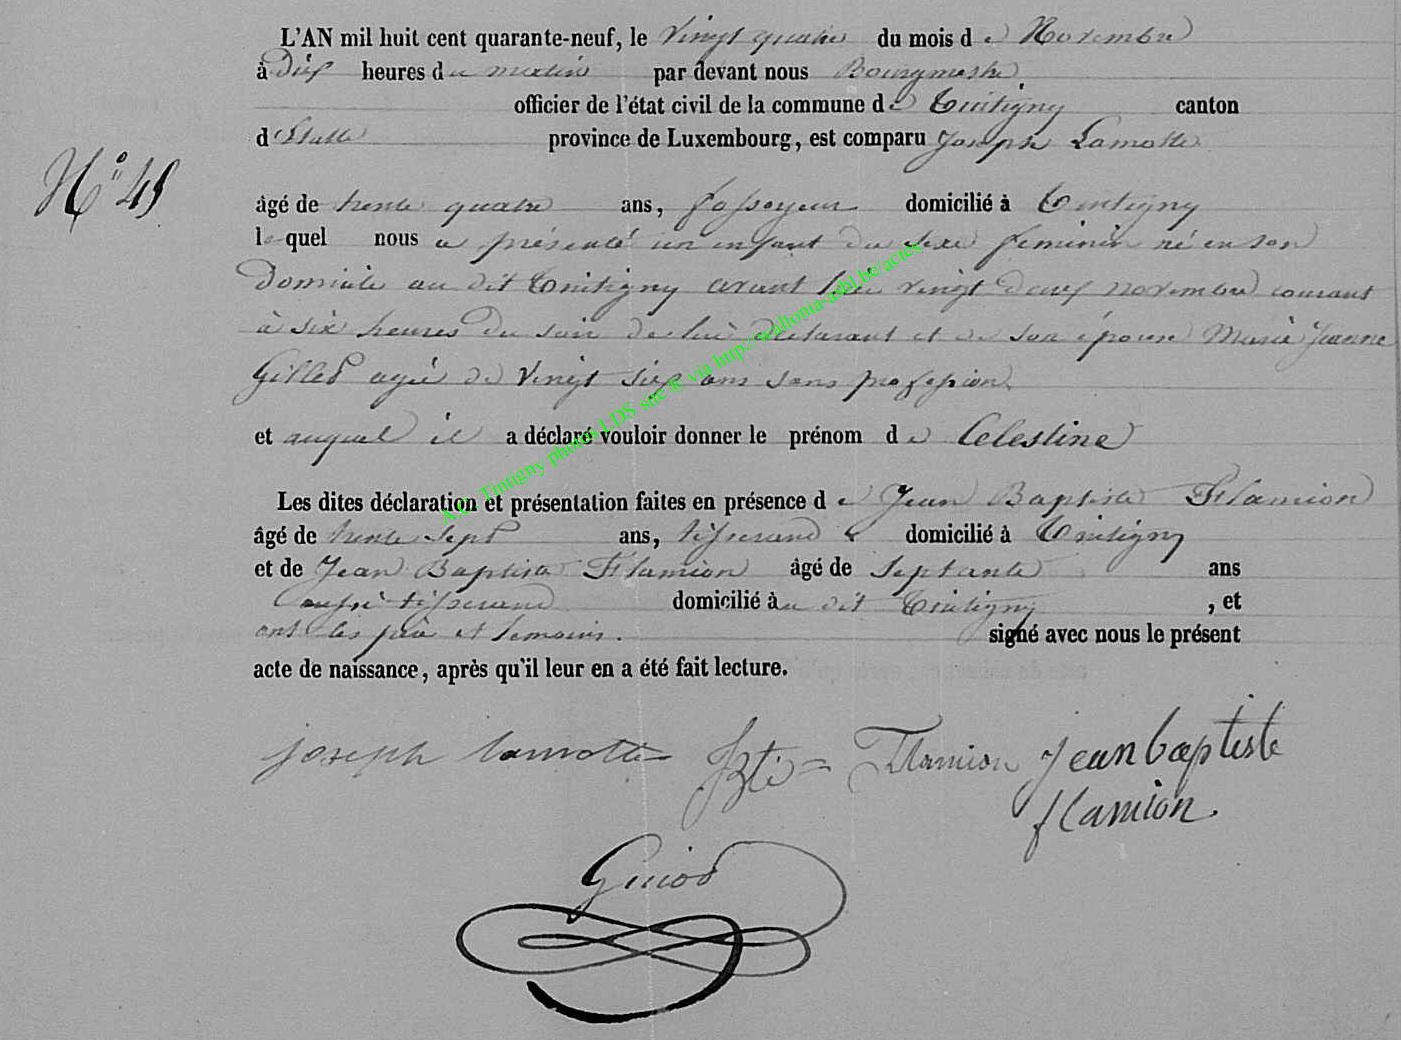 L'AN mil huit cent quarante-neuf, le Vingt quatre du mois de Novembre
à Dix heures du matin par devant nous Bourgmestre
officier de l'état civil de la commune de Tintigny canton
d'Etalle province de Luxembourg, est comparu Joseph Lamotte
N° 45
âgé de trente quatre ans, fossoyeur domicilié à Tintigny
lequel nous a présenté un enfant du sexe feminin né en son
Domicile au dit Tintigny avant hier vingt deux novembre courant
à six heures du soir de lui déclarant et de son épouse Marie Jeanne
Gilles agée de Vingt six ans sans profession
et auquel il a déclaré vouloir donner le prénom de Celestine
A.C. Tintigny photos LDS site © via http://wallonia-asbl.be/actes
Les dites déclaration et présentation faites en présence de Jean Baptiste Flamion
âgé de trente Sept ans, tisserand domicilié à Tintigny
et de Jean Baptiste Flamion âgé de Septante ans
aussi tisserand domicilié au dit Tintigny, et
ont les père et temoins. signé avec nous le présent
acte de naissance, après qu'il leur en a été fait lecture.
joseph lamotte JBte Flamion jean baptiste
flamion.
Guiod